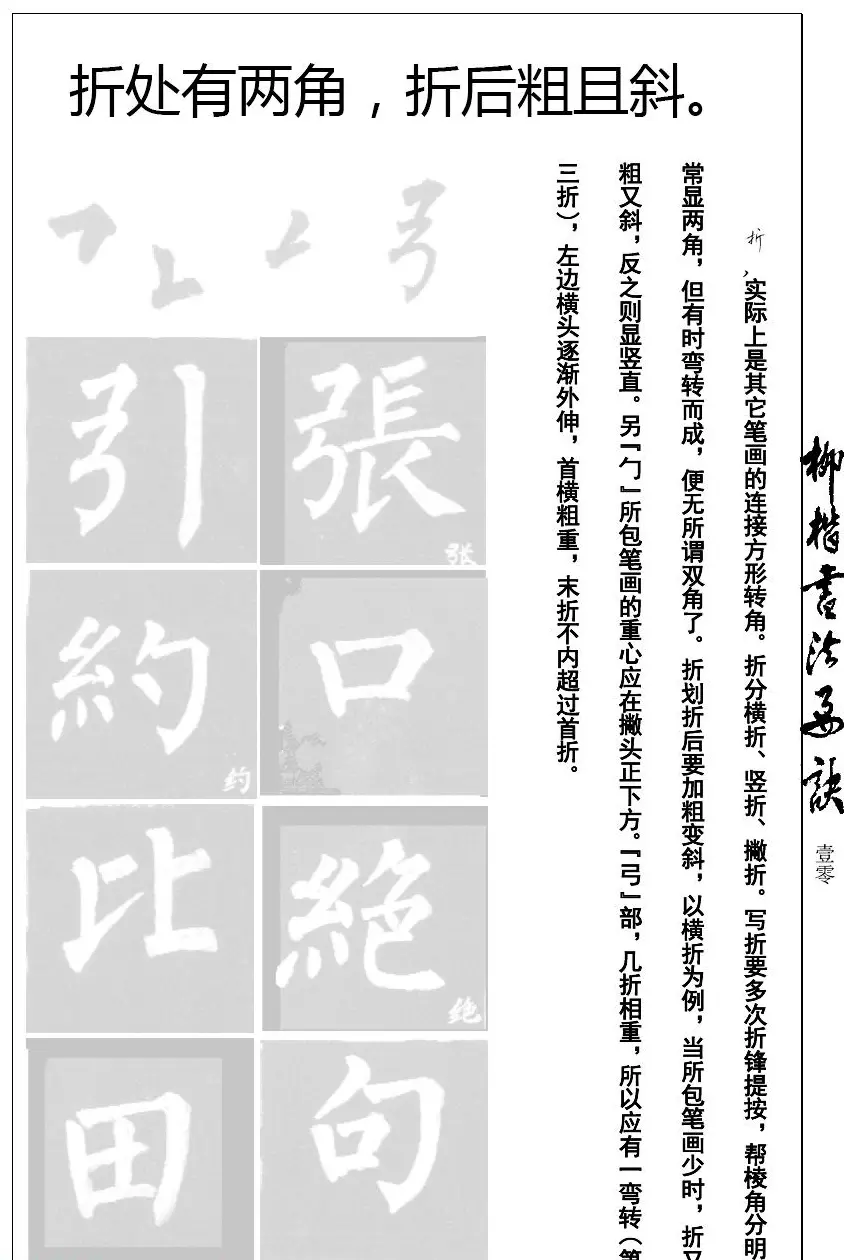 折处有两角，折后粗且斜。
折，实际上是其它笔画的连接方形转角。折分横折、竖折、撇折。写折要多次折锋提按，帮棱角分明
常显两角，但有时弯转而成，便无所谓双角了。折划折后要加粗变斜，以横折为例，当所包笔画少时，折又
粗又斜，反之则显竖直。另『勹』所包笔画的重心应在撇头正下方。『弓』部，几折相重，所以应有一弯转（第
三折），左边横头逐渐外伸，首横粗重，末折不内超过首折。
引
張
张
約
约
口
比
絶
绝
田
句
柳楷書法要訣
壹零